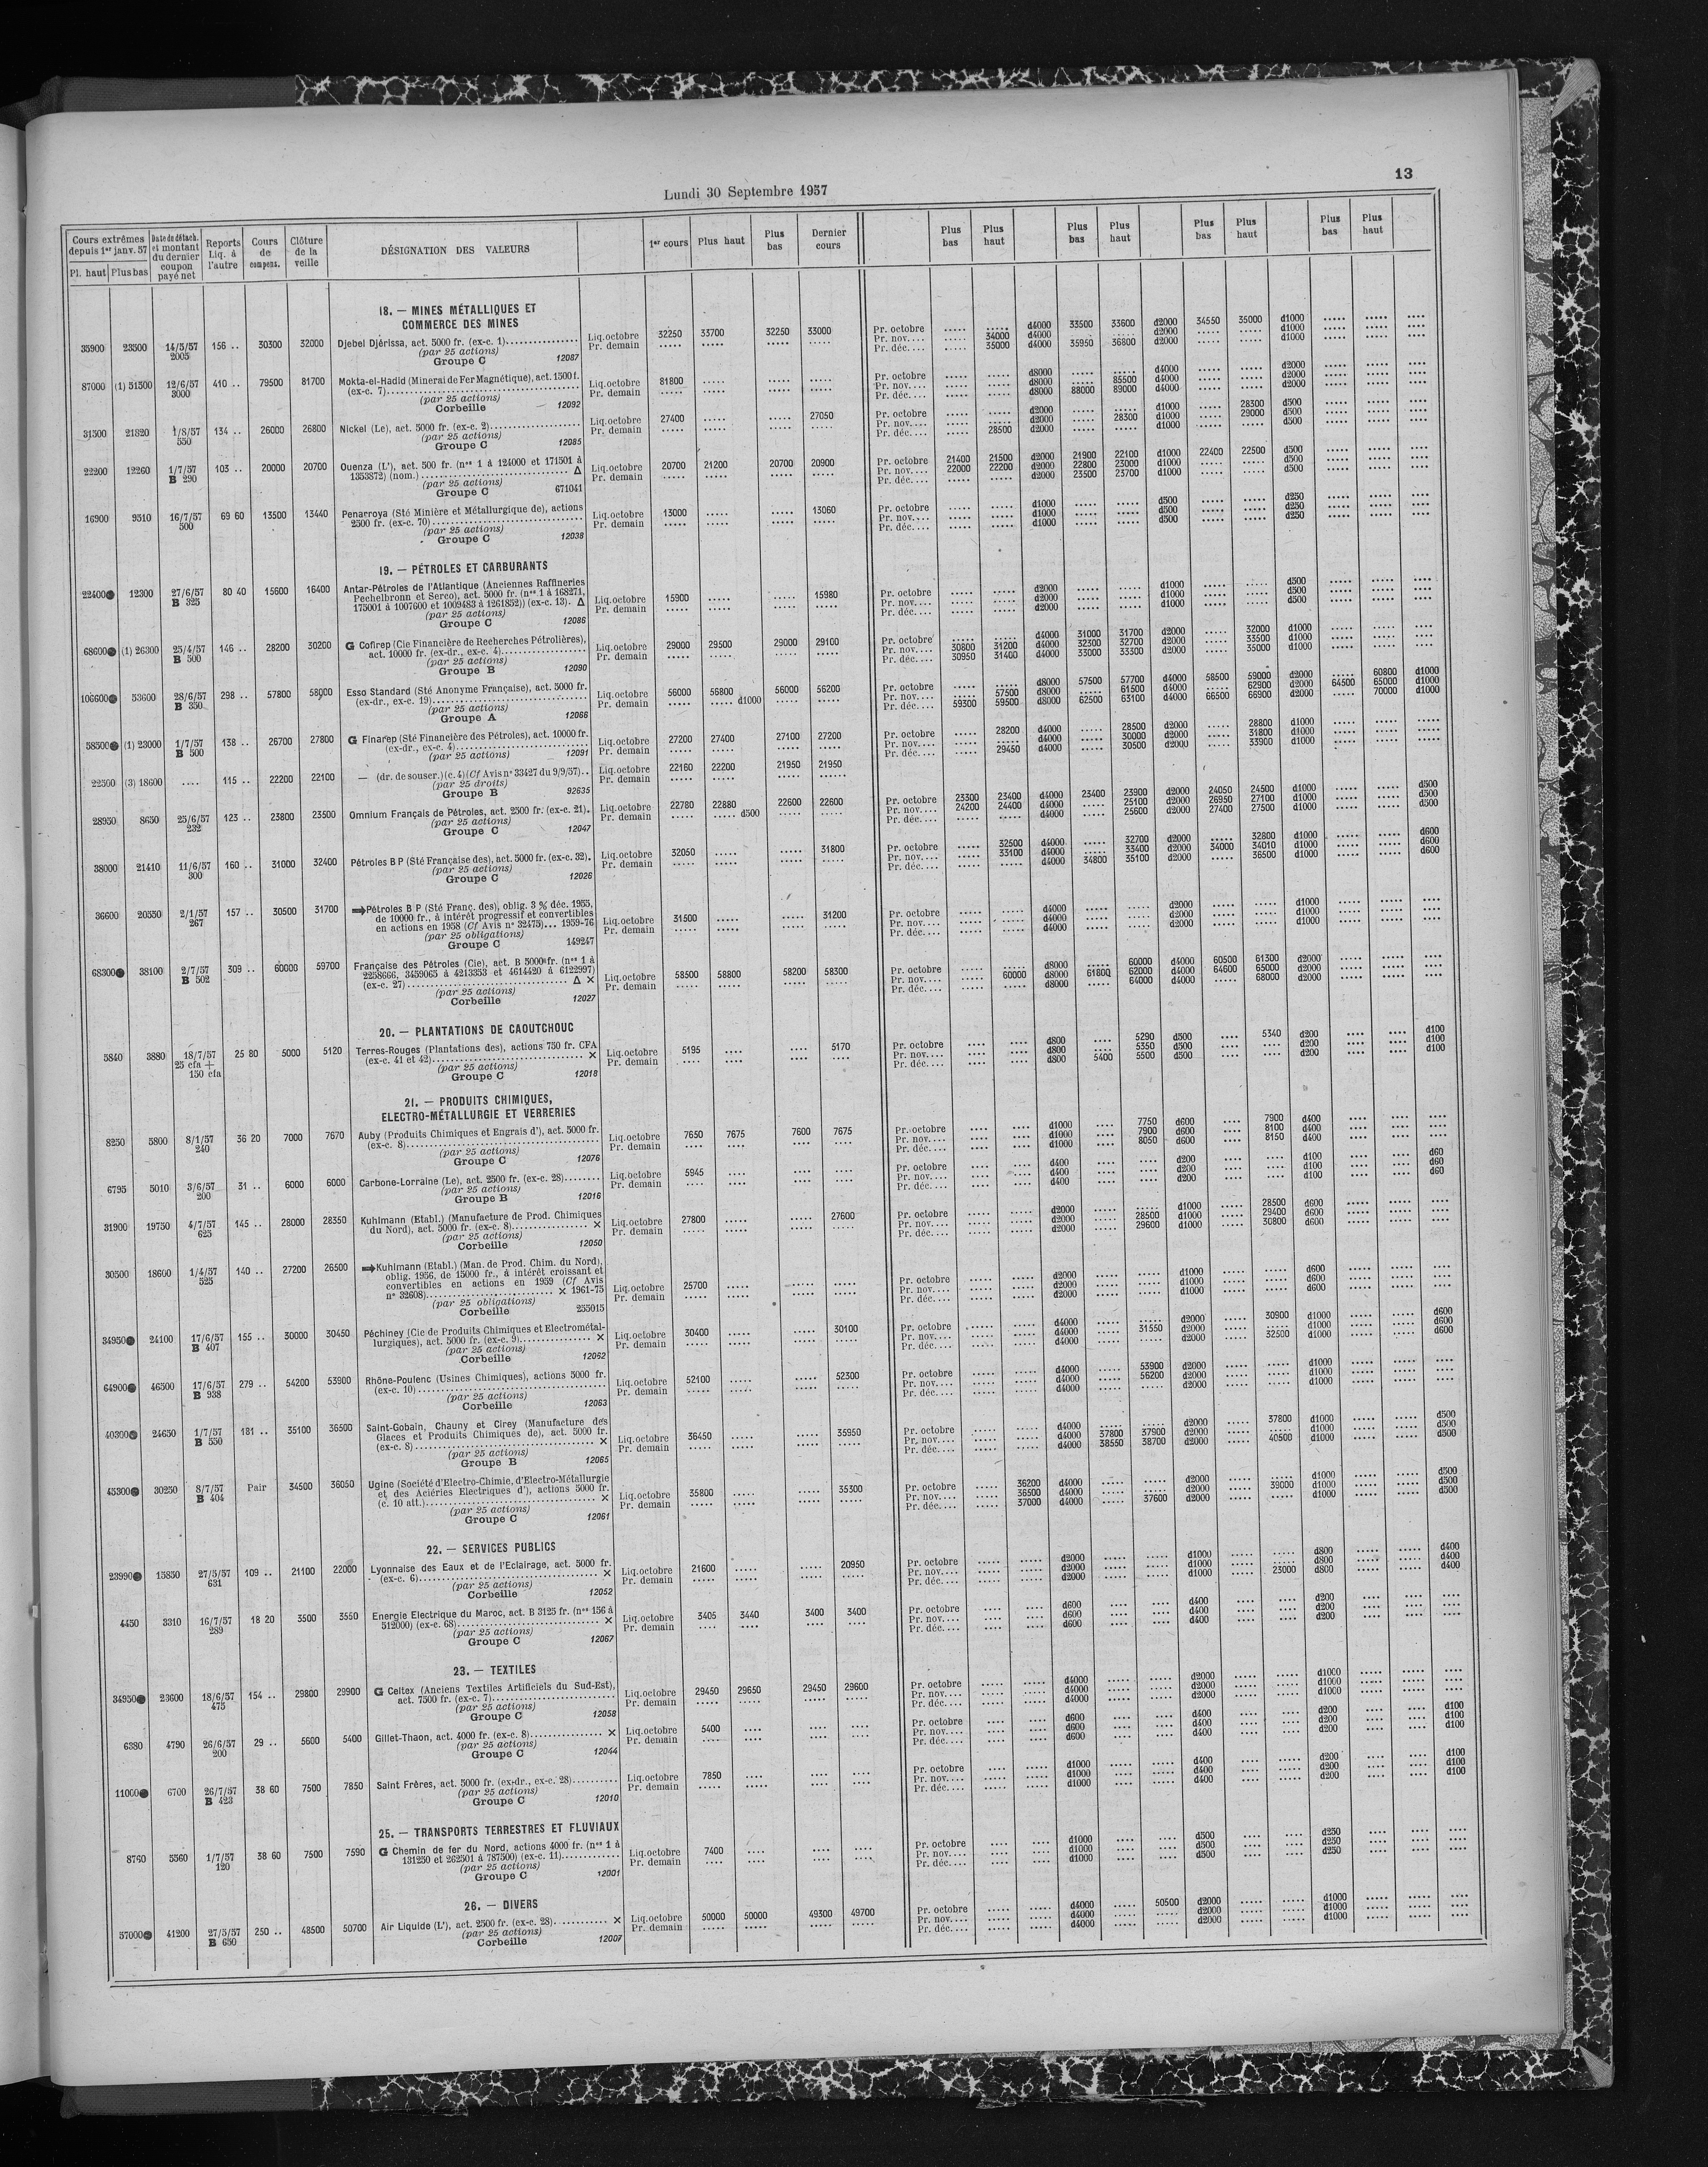 13
Lundi 30 Septembre 1957
Cours extrêmes depuis 1er janv. 57 Date de détach. et montant du dernier coupon payé net Reports Liq. à l'autre Cours de compens. Clôture de la veille DÉSIGNATION DES VALEURS 1er cours Plus haut Plus bas Dernier cours Plus bas Plus haut Plus bas Plus haut Plus bas Plus haut Plus bas Plus haut
Pl. haut Plus bas
18. — MINES MÉTALLIQUES ET
COMMERCE DES MINES
35900 23500 14/5/57 2005 156 .. 30300 32000 Djebel Djérissa, act. 5000 fr. (ex-c. 1) Liq. octobre 32250 33700 32250 33000
Pr. demain ..... ..... ..... .....
(par 25 actions)
Groupe C 12087
Pr. octobre ..... ..... d4000 33500 33600 d2000 34550 35000 d1000 ..... ..... ....
Pr. nov.... ..... 34000 d4000 ..... ..... d2000 ..... ..... d1000 ..... ..... ....
Pr. déc.... ..... 35000 d4000 35950 36800 d2000 ..... ..... d1000 ..... ..... ....
87000 (1) 51500 12/6/57 3000 410 .. 79500 81700 Mokta-el-Hadid (Minerai de Fer Magnétique), act. 1500 f.
(ex-c. 7) Liq. octobre 81800 ..... ..... .....
Pr. demain ..... ..... ..... .....
(par 25 actions)
Corbeille 12092
Pr. octobre ..... ..... d8000 ..... ..... d4000 ..... ..... d2000 ..... ..... ....
Pr. nov.... ..... ..... d8000 ..... 85500 d4000 ..... ..... d2000 ..... ..... ....
Pr. déc.... ..... ..... d8000 88000 89000 d4000 ..... ..... d2000 ..... ..... ....
31500 21820 1/8/57 550 134 .. 26000 26800 Nickel (Le), act. 5000 fr. (ex-c. 2) Liq. octobre 27400 ..... ..... 27050
Pr. demain ..... ..... ..... .....
(par 25 actions)
Groupe C 12085
Pr. octobre ..... ..... d2000 ..... ..... d1000 ..... 28300 d500 ..... ..... ....
Pr. nov.... ..... ..... d2000 ..... 28300 d1000 ..... 29000 d500 ..... ..... ....
Pr. déc.... ..... 28500 d2000 ..... ..... d1000 ..... ..... d500 ..... ..... ....
22200 12260 1/7/57 B 290 103 .. 20000 20700 Ouenza (L'), act. 500 fr. (nos 1 à 124000 et 171501 à
1353872) (nom.) Δ Liq. octobre 20700 21200 20700 20900
Pr. demain ..... ..... ..... .....
(par 25 actions)
Groupe C 671041
Pr. octobre 21400 21500 d2000 21900 22100 d1000 22400 22500 d500 ..... ..... ....
Pr. nov.... 22000 22200 d2000 22800 23000 d1000 ..... ..... d500 ..... ..... ....
Pr. déc.... ..... ..... d2000 23500 23700 d1000 ..... ..... d500 ..... ..... ....
16900 9510 16/7/57 500 69 60 13500 13440 Penarroya (Sté Minière et Métallurgique de), actions
2500 fr. (ex-c. 70) Liq. octobre 13000 ..... ..... 13060
Pr. demain ..... ..... ..... .....
(par 25 actions)
Groupe C 12038
Pr. octobre ..... ..... d1000 ..... ..... d500 ..... ..... d250 ..... ..... ....
Pr. nov.... ..... ..... d1000 ..... ..... d500 ..... ..... d250 ..... ..... ....
Pr. déc.... ..... ..... d1000 ..... ..... d500 ..... ..... d250 ..... ..... ....
19. — PÉTROLES ET CARBURANTS
22400● 12300 27/6/57 B 325 80 40 15600 16400 Antar-Pétroles de l'Atlantique (Anciennes Raffineries
Pechelbronn et Serco), act. 5000 fr. (nos 1 à 168271,
175001 à 1007600 et 1009483 à 1261852)) (ex-c. 13). Δ Liq. octobre 15900 ..... ..... 15980
Pr. demain ..... ..... ..... .....
(par 25 actions)
Groupe C 12086
Pr. octobre ..... ..... d2000 ..... ..... d1000 ..... ..... d500 ..... ..... ....
Pr. nov.... ..... ..... d2000 ..... ..... d1000 ..... ..... d500 ..... ..... ....
Pr. déc.... ..... ..... d2000 ..... ..... d1000 ..... ..... d500 ..... ..... ....
68600● (1) 26300 25/4/57 B 500 146 .. 28200 30200 G Cofirep (Cie Financière de Recherches Pétrolières),
act. 10000 fr. (ex-dr., ex-c. 4) Liq. octobre 29000 29500 29000 29100
Pr. demain ..... ..... ..... .....
(par 25 actions)
Groupe B 12090
Pr. octobre ..... ..... d4000 31000 31700 d2000 ..... 32000 d1000 ..... ..... ....
Pr. nov.... 30800 31200 d4000 32300 32700 d2000 ..... 33500 d1000 ..... ..... ....
Pr. déc.... 30950 31400 d4000 33000 33300 d2000 ..... 35000 d1000 ..... ..... ....
106600● 53600 28/6/57 B 350 298 .. 57800 58000 Esso Standard (Sté Anonyme Française), act. 5000 fr.
(ex-dr., ex-c. 19) Liq. octobre 56000 56800 56000 56200
Pr. demain ..... ..... d1000 ..... .....
(par 25 actions)
Groupe A 12066
Pr. octobre ..... ..... d8000 57500 57700 d4000 58500 59000 d2000 ..... 60800 d1000
Pr. nov.... ..... 57500 d8000 ..... 61500 d4000 ..... 62900 d2000 64500 65000 d1000
Pr. déc.... 59300 59500 d8000 62500 63100 d4000 66500 66900 d2000 ..... 70000 d1000
58500● (1) 23000 1/7/57 B 500 138 .. 26700 27800 G Finarep (Sté Financière des Pétroles), act. 10000 fr.
(ex-dr., ex-c. 4) Liq. octobre 27200 27400 27100 27200
Pr. demain ..... ..... ..... .....
(par 25 actions) 12091
Pr. octobre ..... 28200 d4000 ..... 28500 d2000 ..... 28800 d1000 ..... ..... ....
Pr. nov.... ..... ..... d4000 ..... 30000 d2000 ..... 31800 d1000 ..... ..... ....
Pr. déc.... ..... 29450 d4000 ..... 30500 d2000 ..... 33900 d1000 ..... ..... ....
22500 (3) 18600 .... 115 .. 22200 22100 — (dr. de souscr.) (c. 4) (Cf Avis n° 33427 du 9/9/57).. Liq. octobre 22160 22200 21950 21950
Pr. demain ..... ..... ..... .....
(par 25 droits)
Groupe B 92635
28950 8650 25/6/57 232 123 .. 23800 23500 Omnium Français de Pétroles, act. 2500 fr. (ex-c. 21). Liq. octobre 22780 22880 22600 22600
Pr. demain ..... ..... d500 ..... .....
(par 25 actions)
Groupe C 12047
Pr. octobre 23300 23400 d4000 23400 23900 d2000 24050 24500 d1000 ..... ..... d500
Pr. nov.... 24200 24400 d4000 ..... 25100 d2000 26950 27100 d1000 ..... ..... d500
Pr. déc.... ..... ..... d4000 ..... 25600 d2000 27400 27500 d1000 ..... ..... d500
38000 21410 11/6/57 300 160 .. 31000 32400 Pétroles B P (Sté Française des), act. 5000 fr. (ex-c. 32). Liq. octobre 32050 ..... ..... 31800
Pr. demain ..... ..... ..... .....
(par 25 actions)
Groupe C 12026
Pr. octobre ..... 32500 d4000 ..... 32700 d2000 ..... 32800 d1000 ..... ..... d600
Pr. nov.... ..... 33100 d4000 ..... 33400 d2000 34000 34010 d1000 ..... ..... d600
Pr. déc.... ..... ..... d4000 34800 35100 d2000 ..... 36500 d1000 ..... ..... d600
36600 20550 2/1/57 267 157 .. 30500 31700 ➡Pétroles B P (Sté Franç. des), oblig. 3 % déc. 1955,
de 10000 fr., à intérêt progressif et convertibles
en actions en 1958 (Cf Avis n° 32475)... 1959-76 Liq. octobre 31500 ..... ..... 31200
Pr. demain ..... ..... ..... .....
(par 25 obligations)
Groupe C 149247
Pr. octobre ..... ..... d4000 ..... ..... d2000 ..... ..... d1000 ..... ..... ....
Pr. nov.... ..... ..... d4000 ..... ..... d2000 ..... ..... d1000 ..... ..... ....
Pr. déc.... ..... ..... d4000 ..... ..... d2000 ..... ..... d1000 ..... ..... ....
68300● 38100 2/7/57 B 502 309 .. 60000 59700 Française des Pétroles (Cie), act. B 5000 fr. (nos 1 à
2258666, 3459065 à 4213353 et 4614420 à 6122997)
(ex-c. 27) Δ × Liq. octobre 58500 58800 58200 58300
Pr. demain ..... ..... ..... .....
(par 25 actions)
Corbeille 12027
Pr. octobre ..... ..... d8000 ..... 60000 d4000 60500 61300 d2000 ..... ..... ....
Pr. nov.... ..... 60000 d8000 61800 62000 d4000 64600 65000 d2000 ..... ..... ....
Pr. déc.... ..... ..... d8000 ..... 64000 d4000 ..... 68000 d2000 ..... ..... ....
20. — PLANTATIONS DE CAOUTCHOUC
5840 3880 18/7/57 25 cfa + 150 cfa 25 80 5000 5120 Terres-Rouges (Plantations des), actions 750 fr. CFA
(ex-c. 41 et 42) × Liq. octobre 5195 .... .... 5170
Pr. demain .... .... .... ....
(par 25 actions)
Groupe C 12018
Pr. octobre .... .... d800 .... 5290 d500 .... 5340 d200 .... .... d100
Pr. nov.... .... .... d800 .... 5350 d500 .... .... d200 .... .... d100
Pr. déc.... .... .... d800 5400 5500 d500 .... .... d200 .... .... d100
21. — PRODUITS CHIMIQUES,
ELECTRO-MÉTALLURGIE ET VERRERIES
8250 5800 8/1/57 240 36 20 7000 7670 Auby (Produits Chimiques et Engrais d'), act. 5000 fr.
(ex-c. 8) Liq. octobre 7650 7675 7600 7675
Pr. demain .... .... .... ....
(par 25 actions)
Groupe C 12076
Pr. octobre .... .... d1000 .... 7750 d600 .... 7900 d400 .... .... ....
Pr. nov.... .... .... d1000 .... 7900 d600 .... 8100 d400 .... .... ....
Pr. déc.... .... .... d1000 .... 8050 d600 .... 8150 d400 .... .... ....
6795 5010 3/6/57 200 31 .. 6000 6000 Carbone-Lorraine (Le), act. 2500 fr. (ex-c. 28) Liq. octobre 5945 .... .... ....
Pr. demain .... .... .... ....
(par 25 actions)
Groupe B 12016
Pr. octobre .... .... d400 .... .... d200 .... .... d100 .... .... d60
Pr. nov.... .... .... d400 .... .... d200 .... .... d100 .... .... d60
Pr. déc.... .... .... d400 .... .... d200 .... .... d100 .... .... d60
31900 19750 4/7/57 625 145 .. 28000 28350 Kuhlmann (Etabl.) (Manufacture de Prod. Chimiques
du Nord), act. 5000 fr. (ex-c. 8) × Liq. octobre 27800 ..... ..... 27600
Pr. demain ..... ..... ..... .....
(par 25 actions)
Corbeille 12050
Pr. octobre ..... ..... d2000 ..... ..... d1000 ..... 28500 d600 ..... ..... ....
Pr. nov.... ..... ..... d2000 ..... 28500 d1000 ..... 29400 d600 ..... ..... ....
Pr. déc.... ..... ..... d2000 ..... 29600 d1000 ..... 30800 d600 ..... ..... ....
30500 18600 1/4/57 525 140 .. 27200 26500 ➡Kuhlmann (Etabl.) (Man. de Prod. Chim. du Nord),
oblig. 1956, de 15000 fr., à intérêt croissant et
convertibles en actions en 1959 (Cf Avis
n° 32608) × 1961-75 Liq. octobre 25700 ..... ..... .....
Pr. demain ..... ..... ..... .....
(par 25 obligations)
Corbeille 255015
Pr. octobre ..... ..... d2000 ..... ..... d1000 ..... ..... d600 ..... ..... ....
Pr. nov.... ..... ..... d2000 ..... ..... d1000 ..... ..... d600 ..... ..... ....
Pr. déc.... ..... ..... d2000 ..... ..... d1000 ..... ..... d600 ..... ..... ....
34950● 24100 17/6/57 B 407 155 .. 30000 30450 Péchiney (Cie de Produits Chimiques et Electrométal-
lurgiques), act. 5000 fr. (ex-c. 9) × Liq. octobre 30400 ..... ..... 30100
Pr. demain ..... ..... ..... .....
(par 25 actions)
Corbeille 12062
Pr. octobre ..... ..... d4000 ..... ..... d2000 ..... 30900 d1000 ..... ..... d600
Pr. nov.... ..... ..... d4000 ..... 31550 d2000 ..... ..... d1000 ..... ..... d600
Pr. déc.... ..... ..... d4000 ..... ..... d2000 ..... 32500 d1000 ..... ..... d600
64900● 46500 17/6/57 B 938 279 .. 54200 53900 Rhône-Poulenc (Usines Chimiques), actions 5000 fr.
(ex-c. 10) Liq. octobre 52100 ..... ..... 52300
Pr. demain ..... ..... ..... .....
(par 25 actions)
Corbeille 12063
Pr. octobre ..... ..... d4000 ..... 53900 d2000 ..... ..... d1000 ..... ..... ....
Pr. nov.... ..... ..... d4000 ..... 56200 d2000 ..... ..... d1000 ..... ..... ....
Pr. déc.... ..... ..... d4000 ..... ..... d2000 ..... ..... d1000 ..... ..... ....
40300● 24650 1/7/57 B 550 181 .. 35100 36500 Saint-Gobain, Chauny et Cirey (Manufacture des
Glaces et Produits Chimiques de), act. 5000 fr.
(ex-c. 8) × Liq. octobre 36450 ..... ..... 35950
Pr. demain ..... ..... ..... .....
(par 25 actions)
Groupe B 12065
Pr. octobre ..... ..... d4000 ..... ..... d2000 ..... 37800 d1000 ..... ..... d500
Pr. nov.... ..... ..... d4000 37800 37900 d2000 ..... ..... d1000 ..... ..... d500
Pr. déc.... ..... ..... d4000 38550 38700 d2000 ..... 40500 d1000 ..... ..... d500
45300● 30250 8/7/57 B 404 Pair 34500 36050 Ugine (Société d'Electro-Chimie, d'Electro-Métallurgie
et des Aciéries Electriques d'), actions 5000 fr.
(c. 10 att.) × Liq. octobre 35800 ..... ..... 35300
Pr. demain ..... ..... ..... .....
(par 25 actions)
Groupe C 12061
Pr. octobre ..... 36200 d4000 ..... ..... d2000 ..... ..... d1000 ..... ..... d500
Pr. nov.... ..... 36500 d4000 ..... ..... d2000 ..... 39000 d1000 ..... ..... d500
Pr. déc.... ..... 37000 d4000 ..... 37600 d2000 ..... ..... d1000 ..... ..... d500
22. — SERVICES PUBLICS
23990● 15850 27/5/57 631 109 .. 21100 22000 Lyonnaise des Eaux et de l'Eclairage, act. 5000 fr.
(ex-c. 6) × Liq. octobre 21600 ..... ..... 20950
Pr. demain ..... ..... ..... .....
(par 25 actions)
Corbeille 12052
Pr. octobre ..... ..... d2000 ..... ..... d1000 ..... ..... d800 ..... ..... d400
Pr. nov.... ..... ..... d2000 ..... ..... d1000 ..... ..... d800 ..... ..... d400
Pr. déc.... ..... ..... d2000 ..... ..... d1000 ..... 23000 d800 ..... ..... d400
4450 3310 16/7/57 289 18 20 3500 3550 Energie Electrique du Maroc, act. B 3125 fr. (nos 156 à
512000) (ex-c. 68) × Liq. octobre 3405 3440 3400 3400
Pr. demain .... .... .... ....
(par 25 actions)
Groupe C 12067
Pr. octobre .... .... d600 .... .... d400 .... .... d200 .... .... ....
Pr. nov.... .... .... d600 .... .... d400 .... .... d200 .... .... ....
Pr. déc.... .... .... d600 .... .... d400 .... .... d200 .... .... ....
23. — TEXTILES
34950● 23600 18/6/57 475 154 .. 29800 29900 G Celtex (Anciens Textiles Artificiels du Sud-Est),
act. 7500 fr. (ex-c. 7) Liq. octobre 29450 29650 29450 29600
Pr. demain ..... ..... ..... .....
(par 25 actions)
Groupe C 12058
Pr. octobre ..... ..... d4000 ..... ..... d2000 ..... ..... d1000 ..... ..... ....
Pr. nov.... ..... ..... d4000 ..... ..... d2000 ..... ..... d1000 ..... ..... ....
Pr. déc.... ..... ..... d4000 ..... ..... d2000 ..... ..... d1000 ..... ..... ....
6380 4790 26/6/57 200 29 .. 5600 5400 Gillet-Thaon, act. 4000 fr. (ex-c. 8) × Liq. octobre 5400 .... .... ....
Pr. demain .... .... .... ....
(par 25 actions)
Groupe C 12044
Pr. octobre .... .... d600 .... .... d400 .... .... d200 .... .... d100
Pr. nov.... .... .... d600 .... .... d400 .... .... d200 .... .... d100
Pr. déc.... .... .... d600 .... .... d400 .... .... d200 .... .... d100
11000● 6700 26/7/57 B 423 38 60 7500 7850 Saint Frères, act. 5000 fr. (ex-dr., ex-c. 28) Liq. octobre 7850 .... .... ....
Pr. demain .... .... .... ....
(par 25 actions)
Groupe C 12010
Pr. octobre .... .... d1000 .... .... d400 .... .... d200 .... .... d100
Pr. nov.... .... .... d1000 .... .... d400 .... .... d200 .... .... d100
Pr. déc.... .... .... d1000 .... .... d400 .... .... d200 .... .... d100
25. — TRANSPORTS TERRESTRES ET FLUVIAUX
8760 5560 1/7/57 120 38 60 7500 7590 G Chemin de fer du Nord, actions 4000 fr. (nos 1 à
131250 et 262501 à 787500) (ex-c. 11) Liq. octobre 7400 .... .... ....
Pr. demain .... .... .... ....
(par 25 actions)
Groupe C 12001
Pr. octobre .... .... d1000 .... .... d500 .... .... d250 .... .... ....
Pr. nov.... .... .... d1000 .... .... d500 .... .... d250 .... .... ....
Pr. déc.... .... .... d1000 .... .... d500 .... .... d250 .... .... ....
26. — DIVERS
57000● 41200 27/5/57 B 650 250 .. 48500 50700 Air Liquide (L'), act. 2500 fr. (ex-c. 28) × Liq. octobre 50000 50000 49300 49700
Pr. demain ..... ..... ..... .....
(par 25 actions)
Corbeille 12007
Pr. octobre ..... ..... d4000 ..... 50500 d2000 ..... ..... d1000 ..... ..... ....
Pr. nov.... ..... ..... d4000 ..... ..... d2000 ..... ..... d1000 ..... ..... ....
Pr. déc.... ..... ..... d4000 ..... ..... d2000 ..... ..... d1000 ..... ..... ....